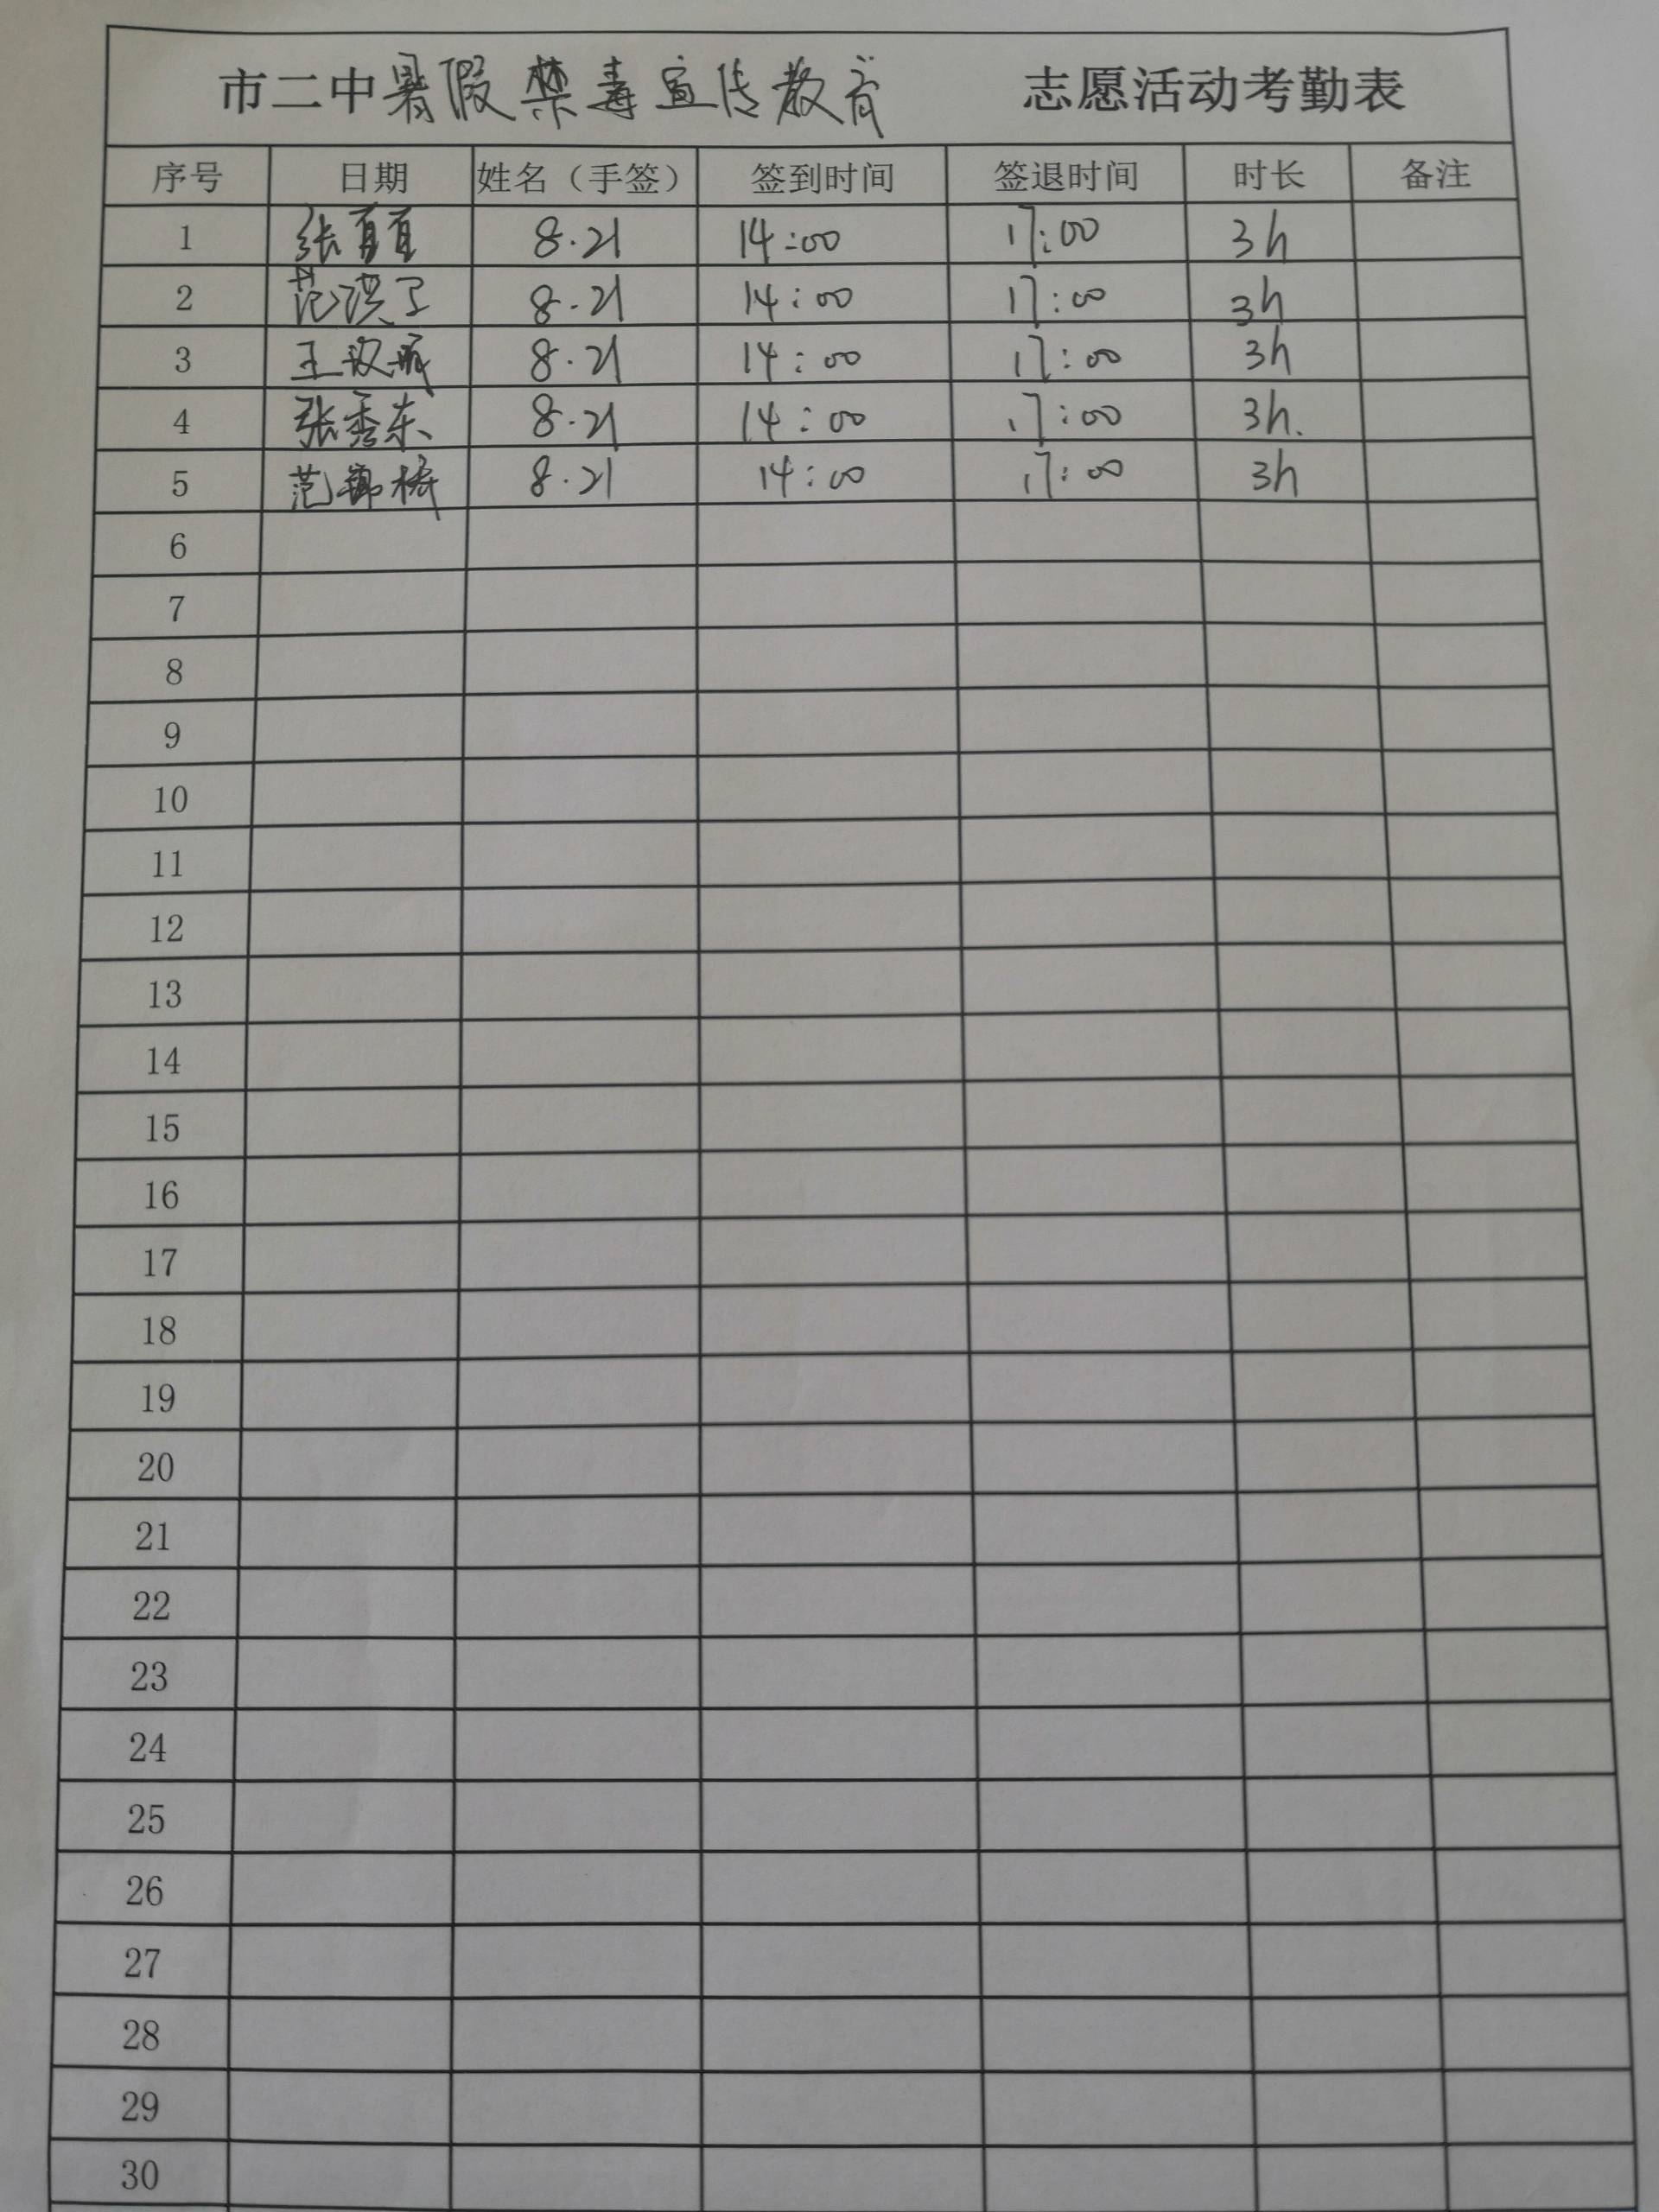 市二中暑假禁毒宣传教育 志愿活动考勤表
序号 日期 姓名（手签） 签到时间 签退时间 时长 备注
1 张夏夏 8.21 14:00 17:00 3h
2 范 8.21 14:00 17:00 3h
3 王 8.21 14:00 17:00 3h
4 张秀东 8.21 14:00 17:00 3h.
5 范 8.21 14:00 17:00 3h
6
7
8
9
10
11
12
13
14
15
16
17
18
19
20
21
22
23
24
25
26
27
28
29
30